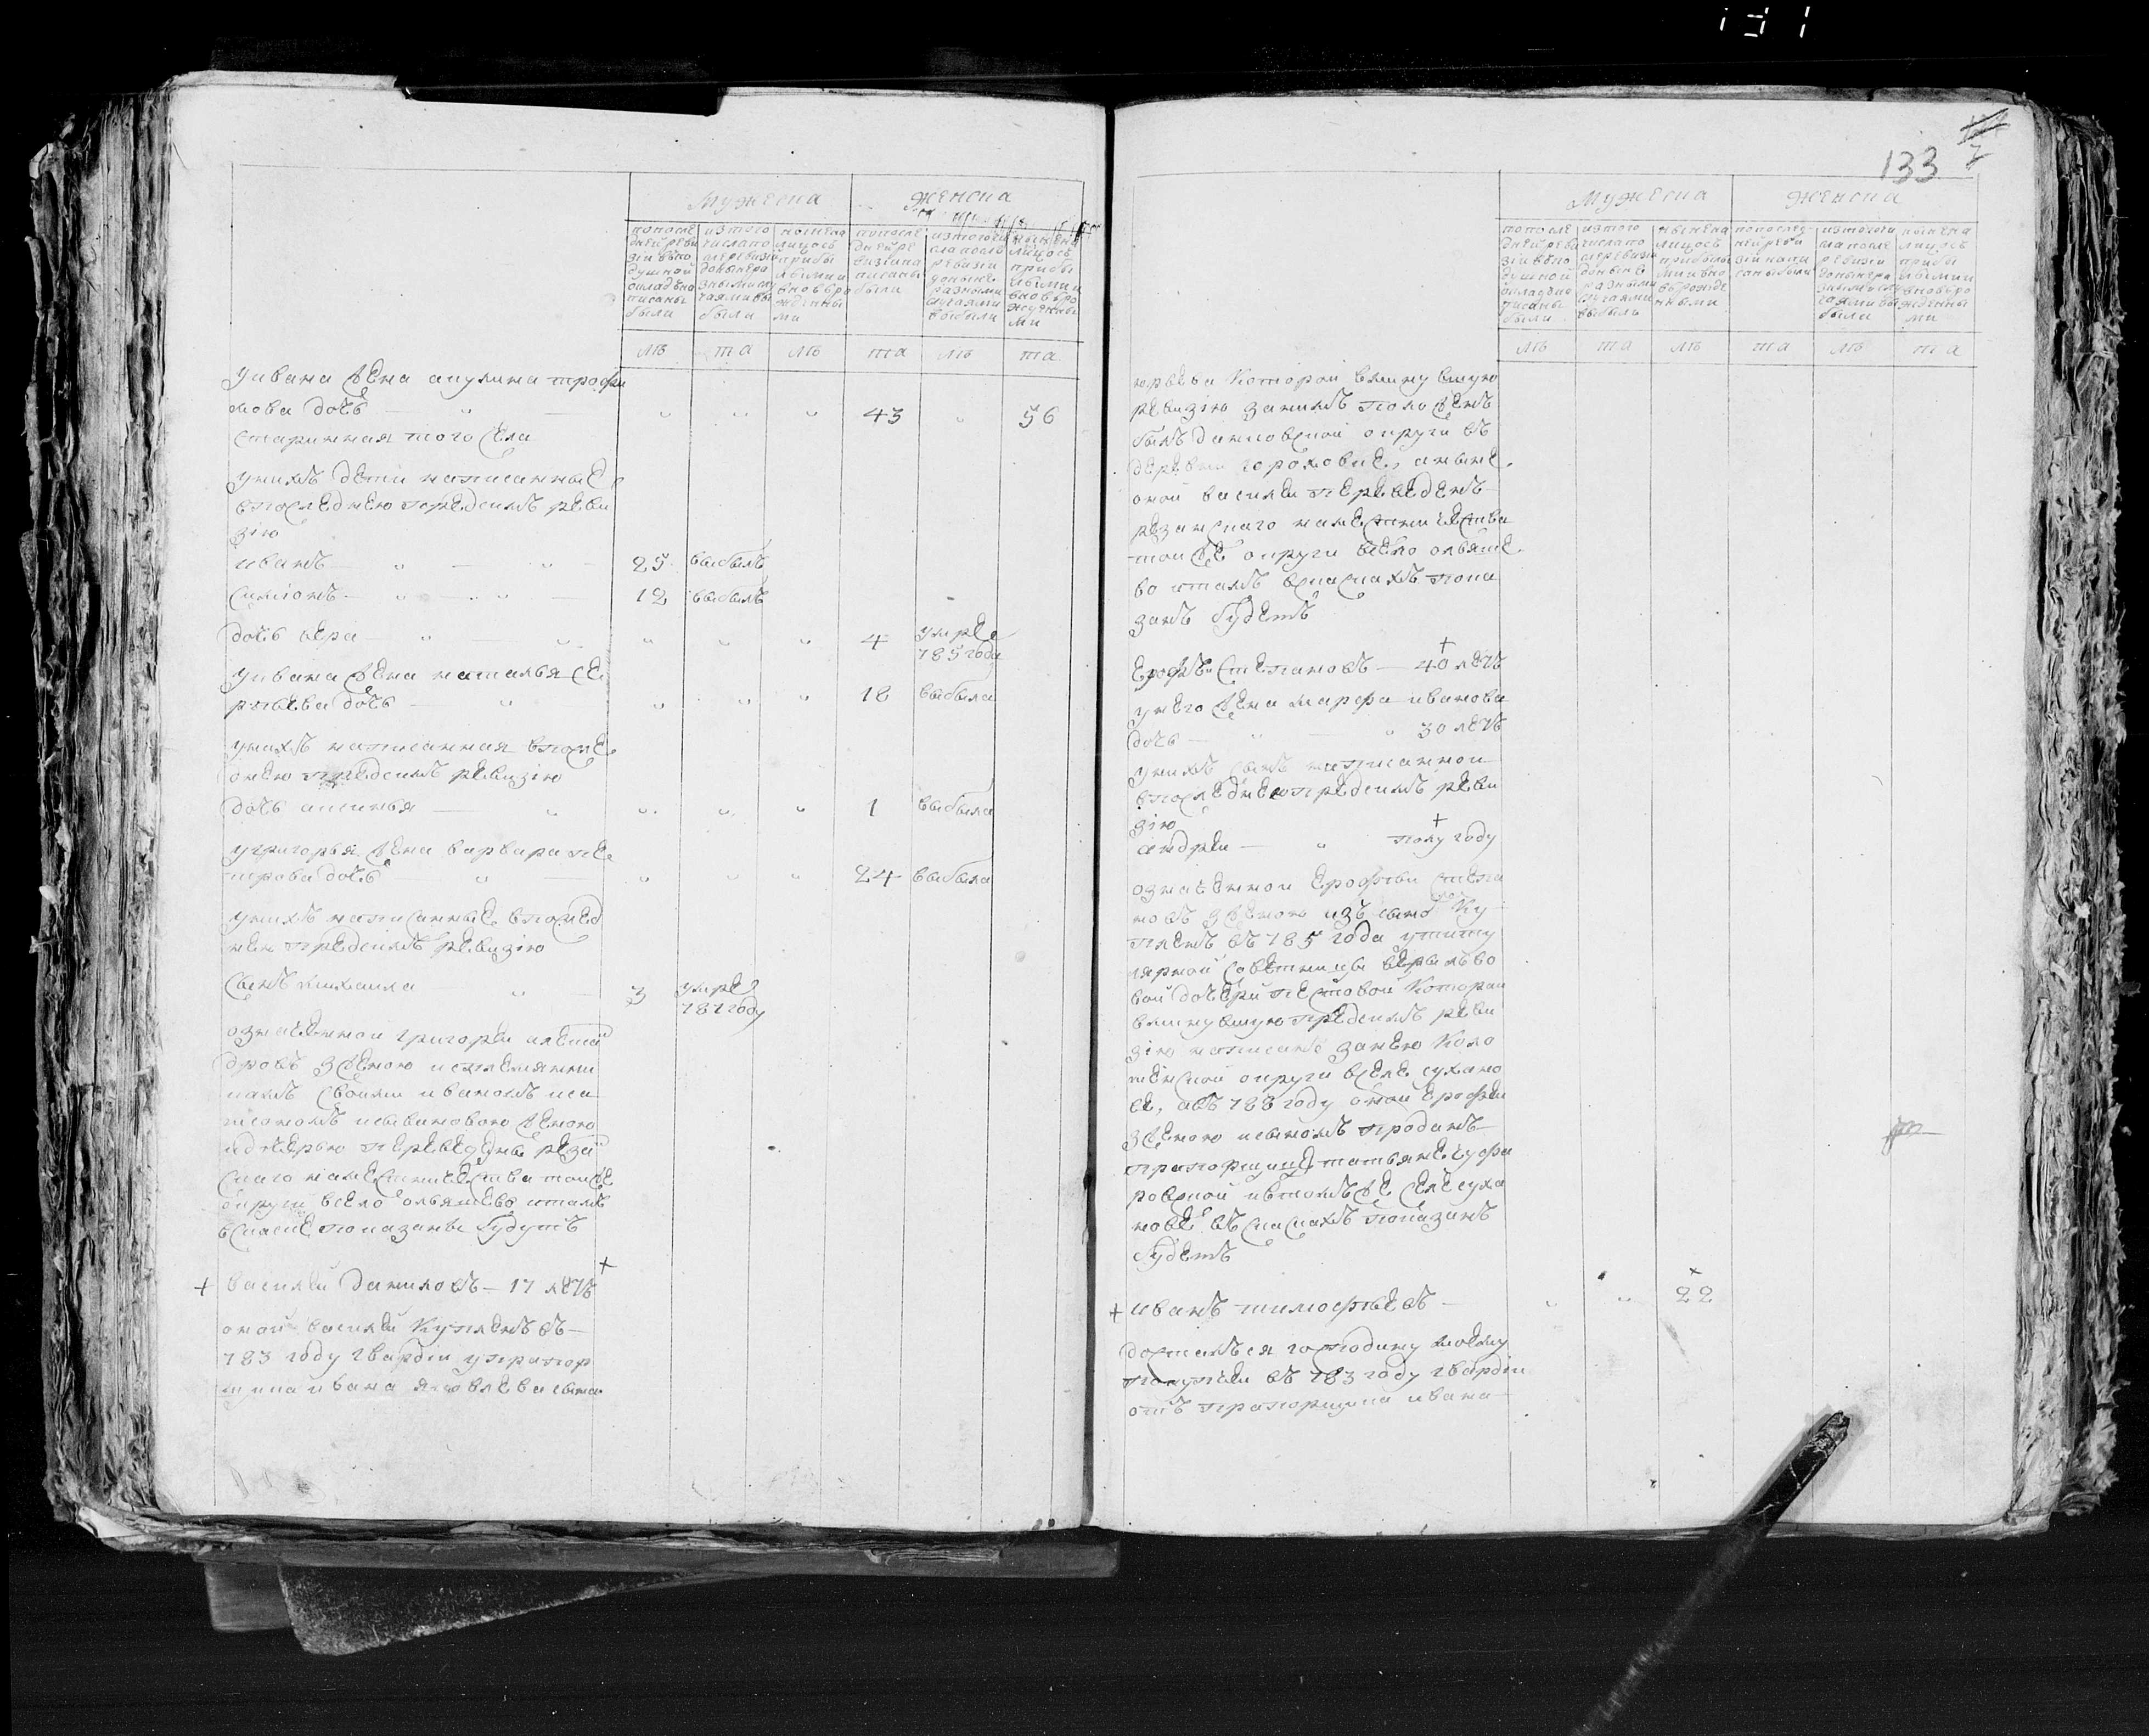 131
133
7
Мужеска
Женска
попосле
дней реви
зіи вѣпо
душной
окладъна
писаны
были
изтого
числа по
слеревизіи
донынера
зными слу
чаями вы
были
ныненa
лицось
прибы
лыми и
вновьро
жденны
ми
попосле
дней ре
визіина
писаны
были
изтогочи
сла посл
ревизіи
доныне
разными
случаями
выбыли
нынена
лицось
прибы
лыми и
вновьро
жденны
ми
лѣ та лѣ та лѣ та
уивана жена акулина трофи
мова дочь 43 56
старинная того села
унихъ дети написанные
впоследнею предсимъ реви
зію
иванъ 25 выбылъ
симіонъ 12 выбылъ
дочь вера 4 умре
785 года
уивана жена наталья се
ргѣева дочь 18 выбыла
унихъ написанная впосле
днею предсимъ ревизію
дочь аксинья 1 выбыла
угригорья жена варвара пе
трова дочь 24 выбыла
унихъ написанные впослед
нею предсимъ ревизію
сынъ михаила 3 умре
787 году
означенной григорей алексан
дровъ зженою исплемянни
камъ своимъ иваномъ иси
миономъ исывановою женою
идочерью переведены резан
скаго наместничества тойже
округи всело ольяшево итамъ
всписке показаны будутъ
+ василей даниловъ — 17 летъ +
оной василей купленъ въ
783 году гвардіи упрапор
щика ивана яковлева сына
Мужеска
Женска
попосле
дней реви
зіи вѣпо
душной
окладъна
писаны
были
изтого
числа по
слеревизіи
доныне
разными
случаями
выбылъ
нынена
лицось
прибылы
ми ивно
ворожде
нными
попослед
ней реви
зіи напи
саны были
изтогочи
сла после
ревизіи
донынера
зными слу
чаями вы
были
нынена
лицось
прибы
лыми и
вновьро
жденны
ми
лѣ та лѣ та лѣ та
юрьева которой вминувшую
ревизію занимъ положенъ
былъ данковской округи въ
деревни гороховке, аныне
оной василей переведенъ
резанскаго наместничества
тойже округи всело ольяше
во итамъ вспискахъ пока
занъ будетъ
+
Ерофѣй степановъ — 40 летъ
унего жена марфа иванова
дочь 30 летъ
унихъ сынъ написанной
впоследнею предсимъ реви
зію
+
андрей полугоду
означенной ерофѣй степа
новъ зженою изъ сыно ку
пленъ въ 785 года утиту
лярной советницы веры льво
вой дочери пестовой которой
вминувшую предсимъ реви
зію написанъ занею коло
менской округи вселе сухано
ве, авъ 788 году оной ерофей
зженою исыномъ проданъ
прапорщице татьяне
ровской ивтомъже селе суха
нове въспискахъ показанъ
будетъ
+ иванъ тимофѣевъ × 22
досталься господину моему
покупкѣи въ 783 году гвардіи
отъ прапорщика ивана